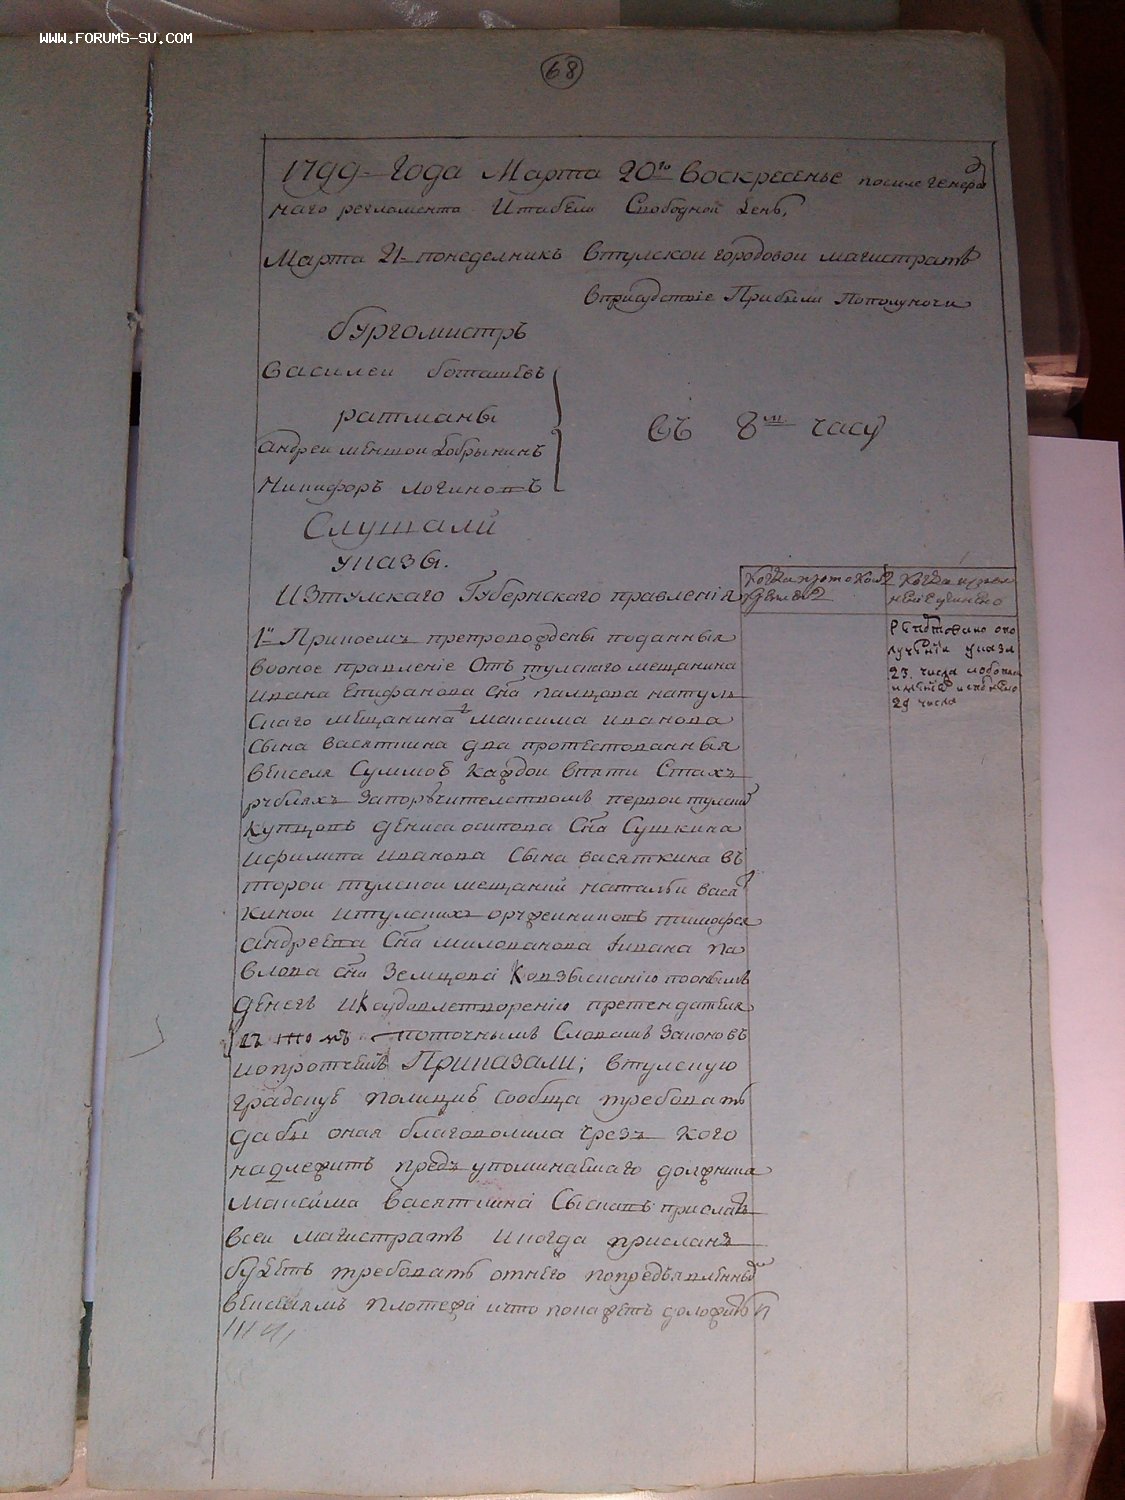 WWW.FORUMS-SU.COM
68
1799 Года Марта 20го воскресенье после генерал
наго регламента и табели Свободной день,
Марта 21 понеделникъ втулскои городовои магистратъ
вприсудствие Прибыли Пополуночи
бургомистръ
василеи боташевъ
ратманы
андреи меншои добрынинъ
Никифоръ логиновъ
въ 8м часу
Слушали
указы.
Изтулскаго Губернскаго правления
когда протоколъ
когда исполнение учинено
1е Прикоемъ препровождены поданныя
воное правление Отъ тулскаго мещанина
ивана Епифанова сна палцова натулъ
скаго мещанина максима иванова
сына васяткина два протестованныя
векселя Суммою каждои впяти Стахъ
рубляхъ запоручителствомъ первои тулски
купцовъ дениса осипова Сна Сушкина
ифилипа иванова Сына васяткина въ
торои тулскои мещанки натальи васят
киной итулскихъ оружеиниковъ тимофея
андреева Сна милованова ивана па
влова сна Земцова Ковзысканию пооным
денегъ икоудовлетворению претендателя
поточнымъ Словамъ законовъ
ипротчемъ Приказали; втулскую
градскую полицию сообща требовать
дабы оная благоволила чрезъ кого
надлежитъ предъ упоминаемаго должника
Максима васяткина Сыскавъ прислать
всеи магистратъ и когда присланъ
будетъ требовать отнего попредъявленным
векселямъ платежа ичто покажетъ доложить
Рапортовано опо
лучении указа
23 числа
29 числа